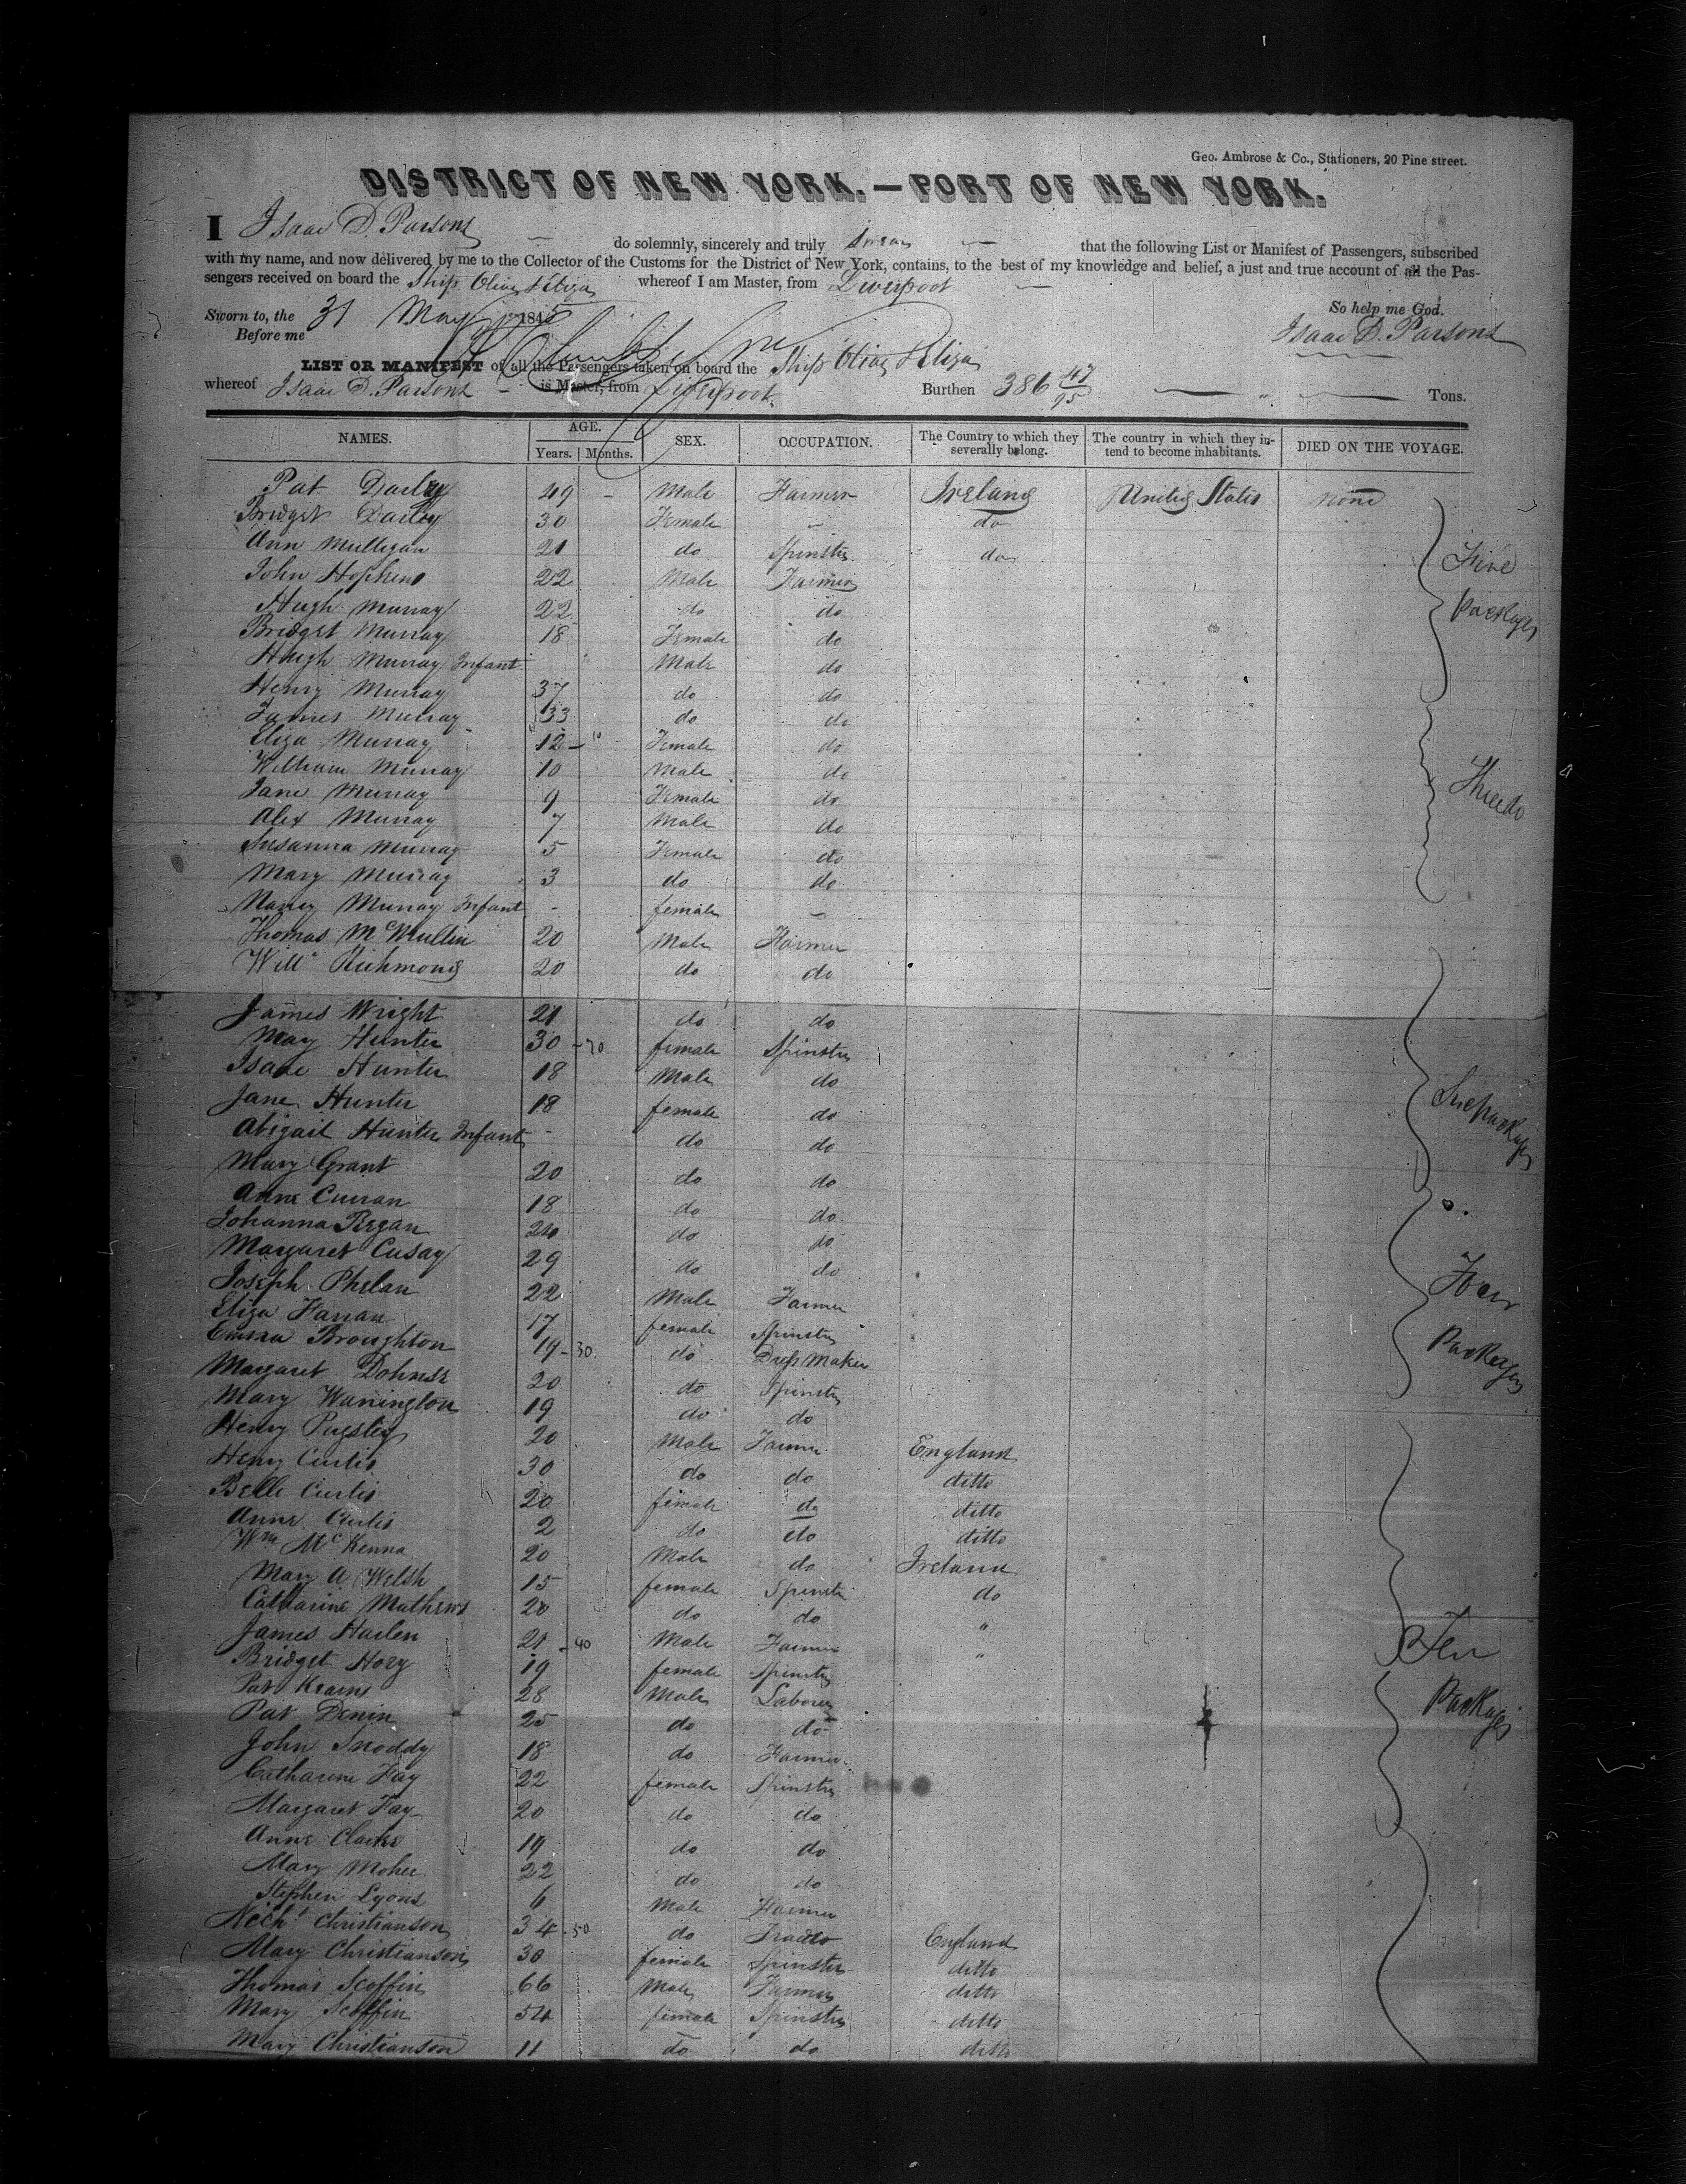 Geo. Ambrose & Co., Stationers, 20 Pine street.
DISTRICT OF NEW YORK.—PORT OF NEW YORK.
I Isaac D. Parsons do solemnly, sincerely and truly swear that the following List or Manifest of Passengers, subscribed
with my name, and now delivered by me to the Collector of the Customs for the District of New York, contains, to the best of my knowledge and belief, a just and true account of all the Pas-
sengers received on board the Ship Olive & Eliza whereof I am Master, from Liverpool
So help me God.
Sworn to, the 31 May 184
Before me
Isaac D. Parsons
LIST OR MANIFEST of all the Passengers taken on board the Ship Olive & Eliza
whereof Isaac D. Parsons is Master, from Liverpool Burthen 386 47/95 Tons.
NAMES. AGE. Years. Months. SEX. OCCUPATION. The Country to which they severally belong. The country in which they intend to become inhabitants. DIED ON THE VOYAGE.
Pat Dailey 49 - Male Farmer Ireland United States none
Bridget Dailey 30 Female - do
Ann Mulligan 21 do Spinster do
John Hopkins 22 Male Farmer Five
Hugh Murray 22 do do Packages
Bridget Murray 18 Female do
Hugh Murray Infant Male do
Henry Murray 37 do do
James Murray 33 do do
Eliza Murray 12 - 10 Female do
William Murray 10 Male do Three do
Jane Murray 9 Female do
Alex Murray 7 Male do
Susanna Murray 5 Female do
Mary Murray 3 do do
Nancy Murray Infant - female -
Thomas McMullin 20 Male Farmer
Willm Richmond 20 do do
James Wright 21 do do
Mary Hunter 30 - 20 female Spinster
Isaac Hunter 18 Male do
Jane Hunter 18 female do packages
Abigail Hunter Infant - do do
Mary Grant 20 do do
Anne Curran 18 do do
Johanna Regan 20 do do
Margaret Cusay 29 do do
Joseph Phelan 22 Male Farmer Four
Eliza Farran 17 female Spinster
Emma Broughton 19 - 30 do Dress Maker Packages
Margaret 20 do Spinster
Mary Warrington 19 do do
Henry Pugsley 20 Male Farmer England
Henry Curtis 30 do do ditto
Belle Curtis 20 female do ditto
Anne Curtis 2 do do ditto
Wm McKenna 20 Male do Ireland
Mary A Welsh 15 female Spinster do
Catharine Mathews 20 do do "
James Harlen 21 - 40 Male Farmer " Ten
Bridget Hoey 19 female Spinster
Pat Kearns 28 Male Laborer Packages
Pat Denin 25 do do
John Snoddy 18 do Farmer
Catharine Fay 22 female Spinster
Margaret Fay 20 do do
Anne Clarke 19 do do
Mary Moher 22 do do
Stephen Lyons 6 Male Farmer
Richd Christianson 34 - 50 do England
Mary Christianson 30 female Spinster ditto
Thomas Scoffin 66 Male Farmer ditto
Mary Scoffin 54 female Spinster ditto
Mary Christianson 11 do do ditto